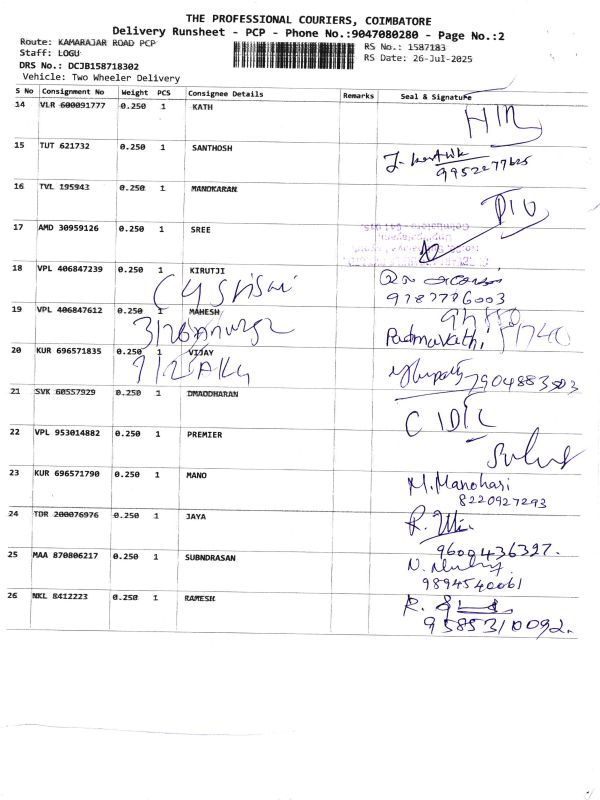 THE PROFESSIONAL COURIERS, COIMBATORE
Delivery Runsheet - PCP - Phone No.:9047080280 - Page No.:2
Route: KAMARAJAR ROAD PCP
RS No.: 1587183
Staff: LOGU
RS Date: 26-Jul-2025
DRS No.: DCJB158718302
Vehicle: Two Wheeler Delivery
S No Consignment No Weight PCS Consignee Details Remarks Seal & Signature
14 VLR 600091777 0.250 1 KATH
15 TUT 621732 0.250 1 SANTHOSH
9952277625
16 TVL 195943 0.250 1 MANOKARAN
17 AMD 30959126 0.250 1 SREE
18 VPL 406847239 0.250 1 KIRUTJI
9787776003
19 VPL 406847612 0.250 1 MAHESH
Padmavathi
20 KUR 696571835 0.250 1 VIJAY
7904883503
21 SVK 60557929 0.250 1 DMAODHARAN
22 VPL 953014882 0.250 1 PREMIER
23 KUR 696571790 0.250 1 MANO M. Manohari
8220927293
24 TDR 200076976 0.250 1 JAYA
9600436327.
25 MAA 870806217 0.250 1 SUBNDRASAN
9894540061
26 NKL 8412223 0.250 1 RAMESH
9585310092.